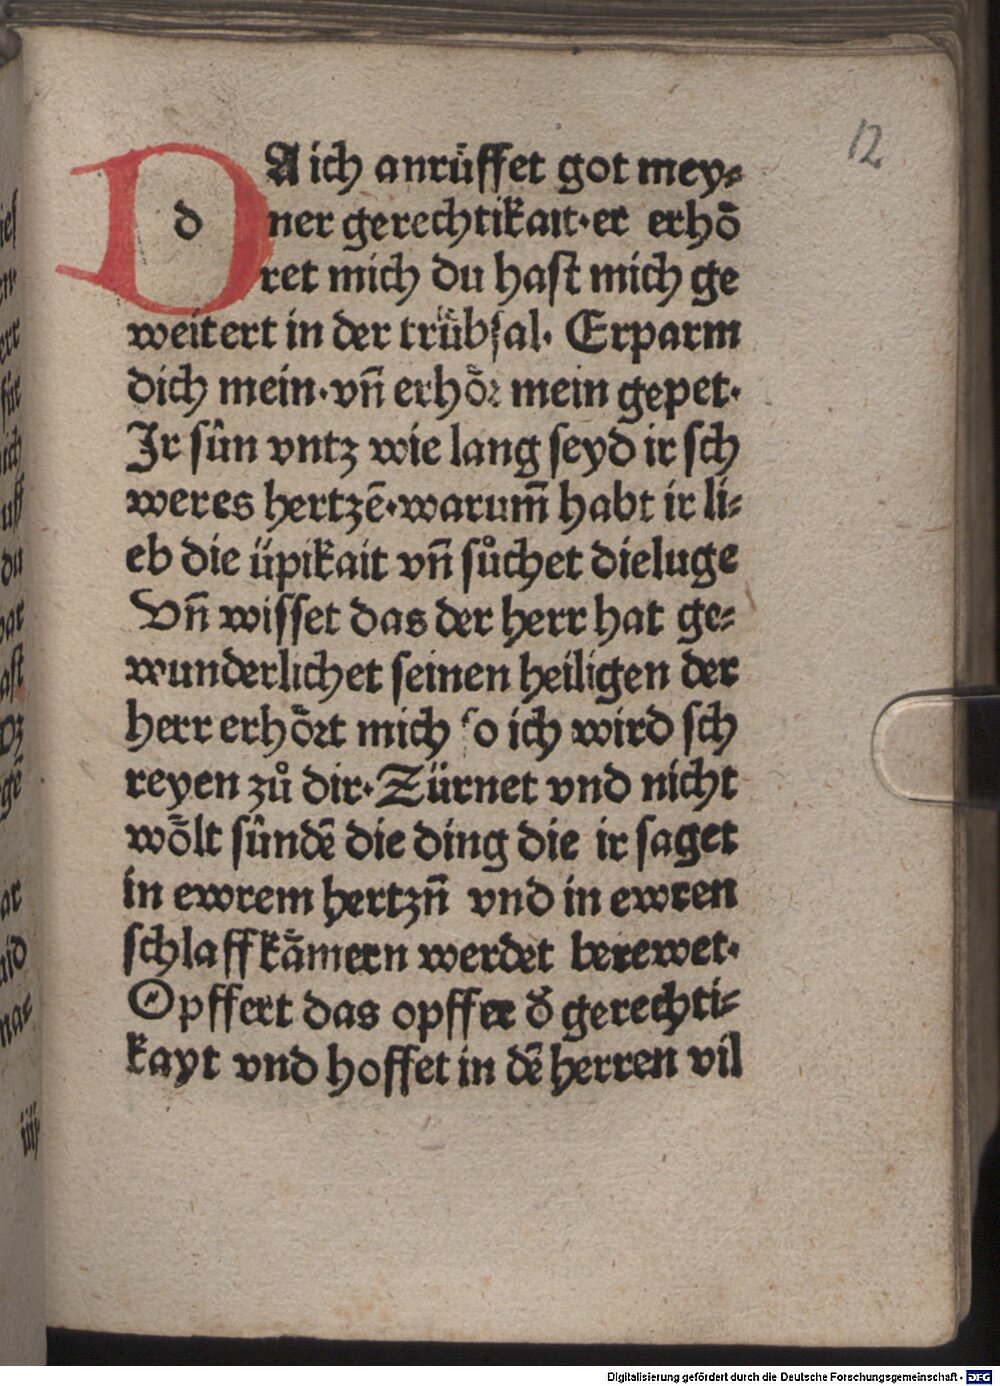 12
DA ich anrüffet got mey⸗
d
ner gerechtikait·er erhö
ret mich du hast mich ge
weitert in der trübsal· Erparm
dich mein·vn̄ erhör mein gepet·
Ir sün vntz wie lang seyd ir sch
weres hertzē·warum̄ habt ir li⸗
eb die üpikait vn̄ sůchet dieluge
Vn̄ wisset das der herr hat ge⸗
wunderlichet seinen heiligen der
herr erhört mich so ich wird sch
reyen zů dir·Zürnet vnd nicht
wölt sündē die ding die ir saget
in ewrem hertzn̄ vnd in ewren
schlaffkämern werdet berewet·
Opffert das opffer d̄ gerechti⸗
kayt vnd hoffet in dē herren vil
iiij
Digitalisierung gefördert durch die Deutsche Forschungsgemeinschaft - DFG